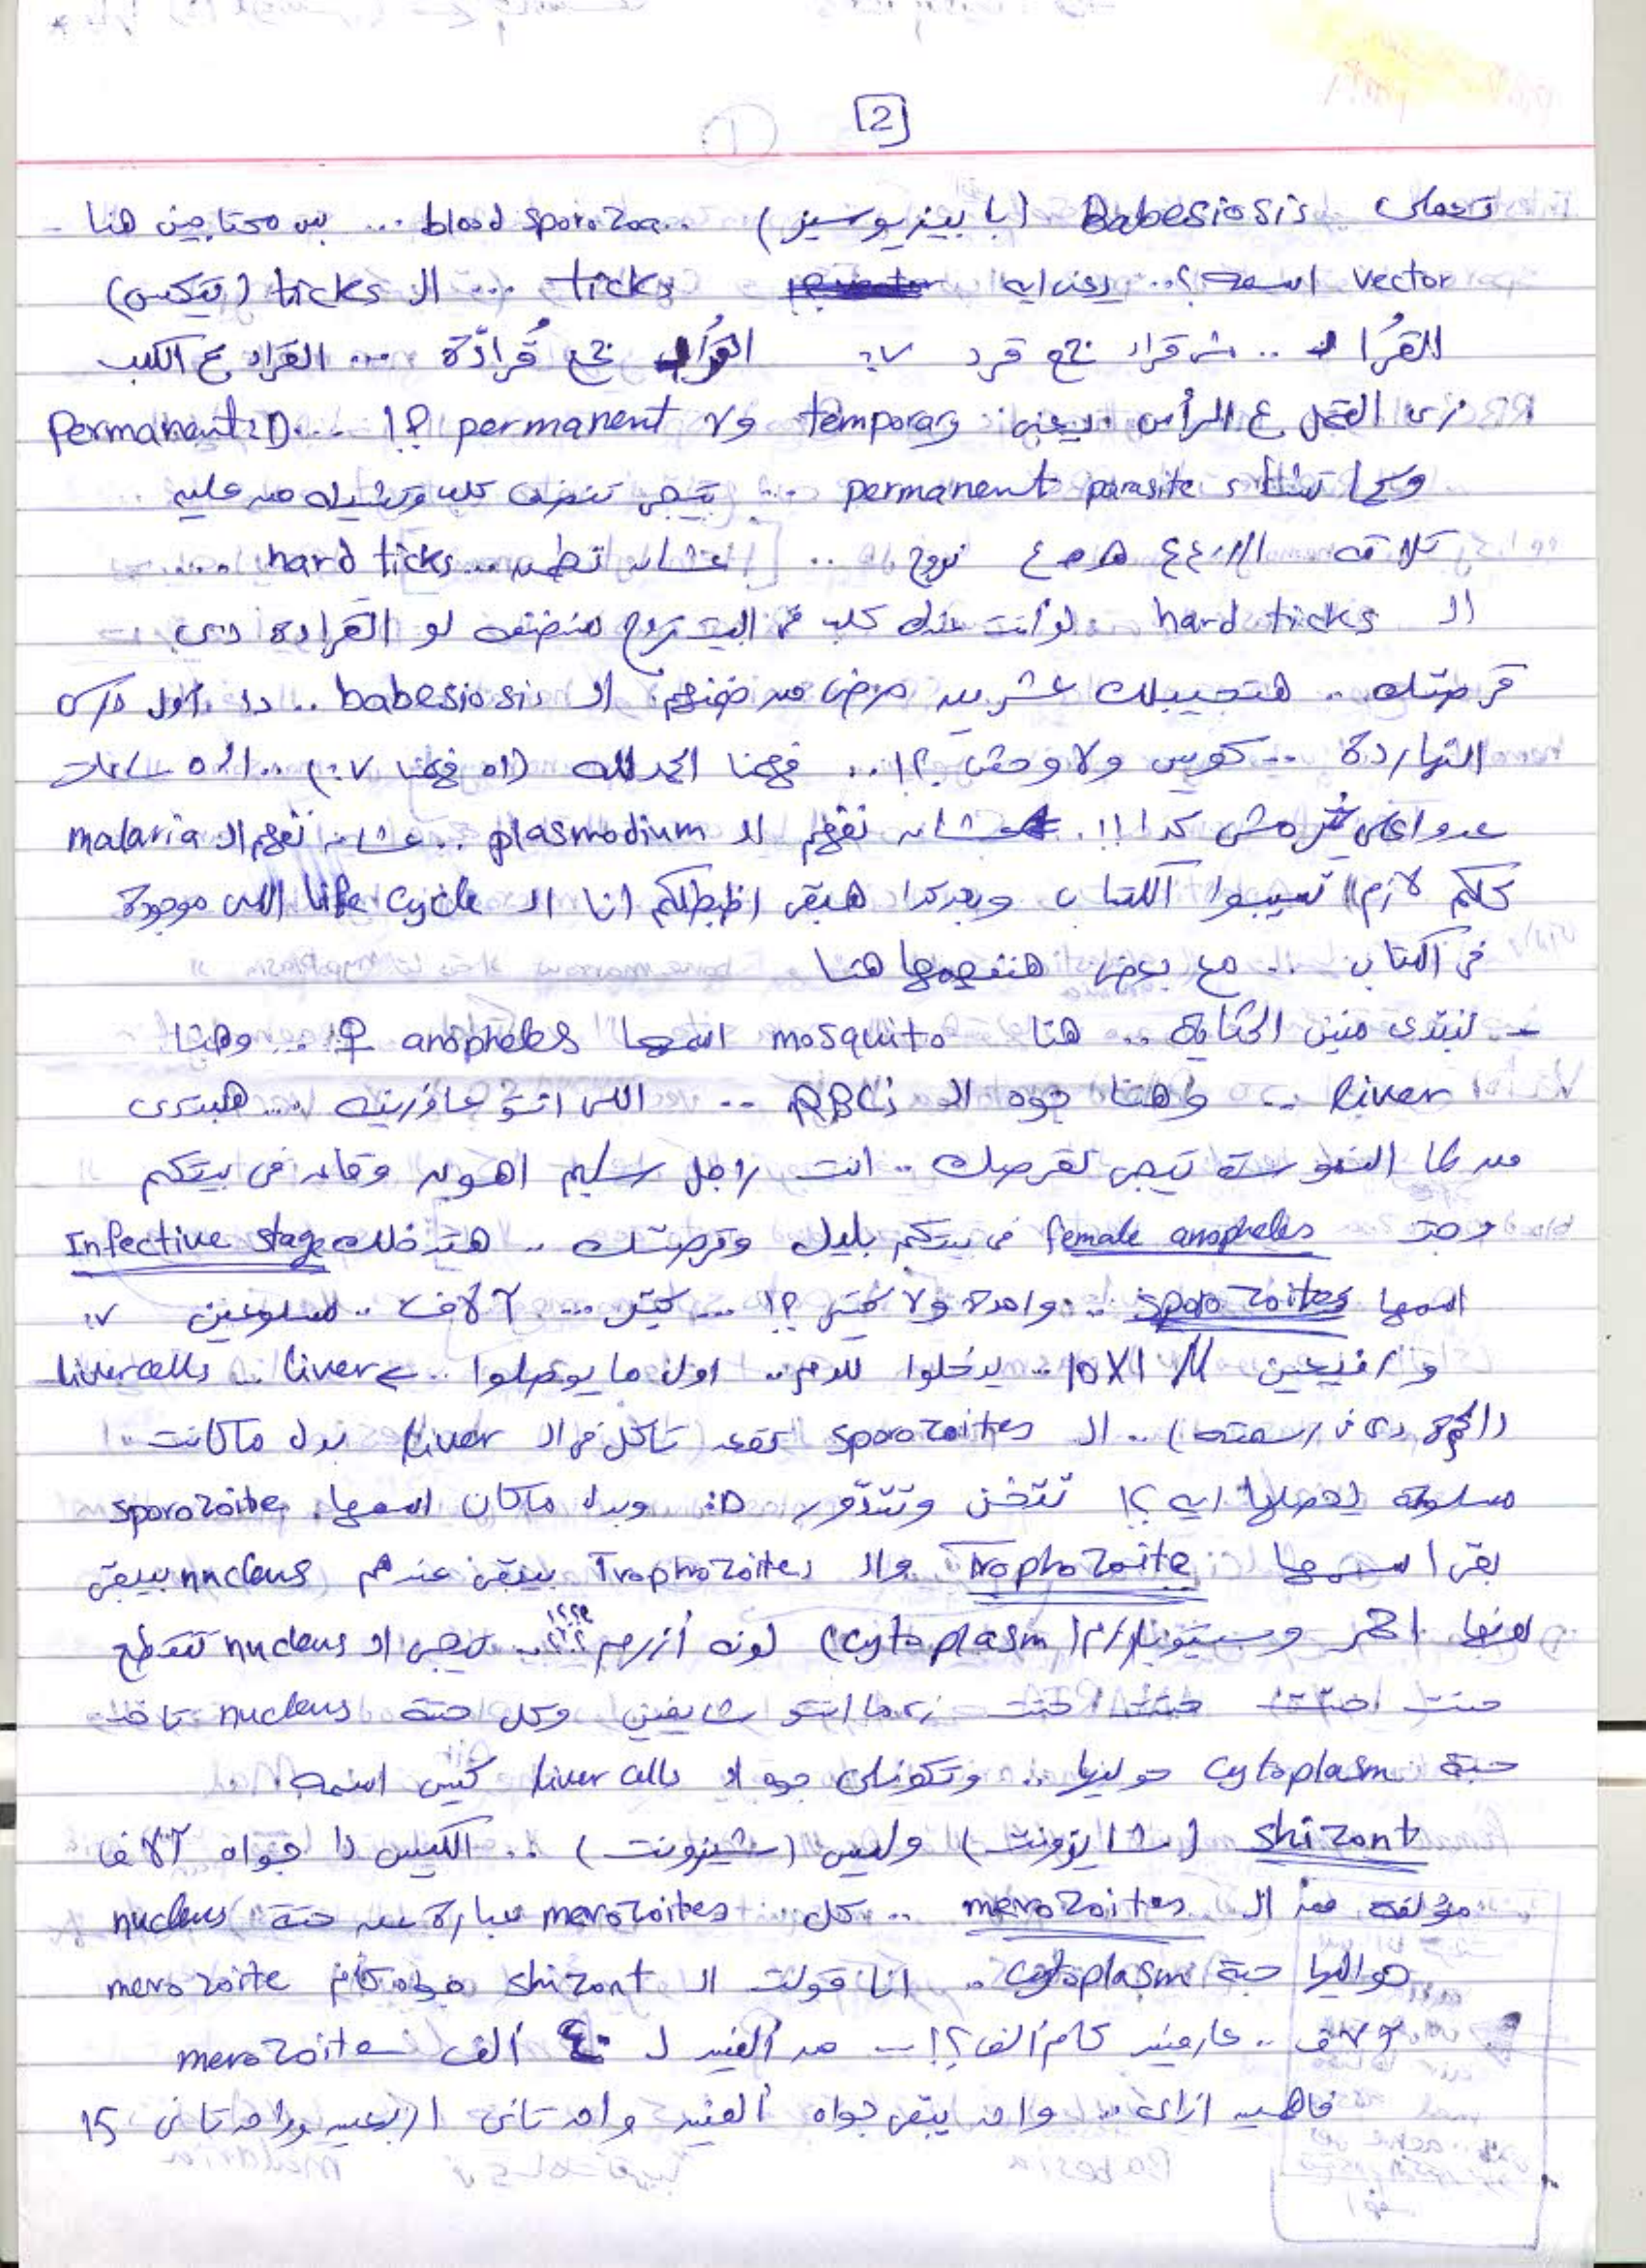 [2]
تعملى Babesiosis (بابيزيوسيز) .. blood sporozoa ... بس محتاجين هنا -
vector اسمه ؟.. يعنى ايه ticks ... الـ ticks (تيكس)
القُراد .. مش قراد جمع قرد :v القُراد جمع قُرادّة ... القراد ع الكلب
زى القمل ع الرأس يعنى: temporary ولا permanent ؟! ... Permanent :D
وكما تشاء permanent parasite ... تيجى تنضف كلب وتشيله من عليه
تلاقه الـ ٤ نزوج .. عشان تطمن ... hard ticks ....
الـ hard ticks لو أنت عندك كلب فى البيت تروح منضفه لو القرادة دى
قرصتك .. هتجيبلك عشرين مرض من ضمنهم الـ babesiosis .. دا أول درس
النهاردة .. كويس ولا وحش ؟!.. فهمنا الحمد لله (اه فهمنا :v) .. الـ ٥ ساعات
عدوا مش كدا !!! عشان نفهم الـ plasmodium .. عشان نفهم الـ malaria
كلكم لازم تسيبوا الكتاب وبعد كدا هبقى اظبطلكم انا الـ life cycle اللى موجودة
فى الكتاب .. مع بعض هنفهمها هنا
- نبتدى منين الحكاية .. هنا mosquito اسمها anopheles ♀ .. وهنا
liver .. وهنا جوه الـ RBCs .. اللى انتو عاوزينه ... هنبتدى
من لما النموسة تيجى تقرصك .. انت راجل سليم اهوه وقاعد فى بيتكم
وجت female anopheles فى بيتكم بليل وقرصتك .. هتدخلك Infective stage
اسمها sporozoites .. واحدة ولا كتير ؟! ... كتير ... آلاف .. مسلوعين :v
ورفيعين 10X1 M .. يدخلوا للدم .. اول ما يوصلوا .. liver .. liver cells
(الحجم دى فى رسمته) .. الـ sporozoites تقعد تاكل فى الـ liver بدل ما كانت
مسلوعة يحصلها ايه ؟! تتخن وتتدّور :D وبدل ماكان اسمها sporozoite
بقى اسمها Trophozoite والـ Trophozoites بيبقى عندهم nucleus بيبقى
لونها احمر وسيتوبلازم (cytoplasm) لونه أزرق ؟؟؟؟ .. تيجى الـ nucleus تتقطع
حتت حتت حتت زى ما انتو شايفين وكل حتة nucleus تاخد
حبة cytoplasm حواليها .. وتكونلى جوه الـ liver cells كيس اسمه
shizont (شايزونت) وليس (شيزونت) .. الكيس دا جواه آلاف
مؤلفة من الـ merozoites .. كل merozoites عبارة عن حتة nucleus
حواليها حبة cytoplasm .. انا قولت الـ shizont جواه كام merozoite
آلاف .. عارفين كام ألف ؟! .. من ألفين لـ ٤٠ ألف merozoites
فاهمين ازاى .. واحد يبقى جواه ألفين واحد تانى اربعين وواحد تانى 15